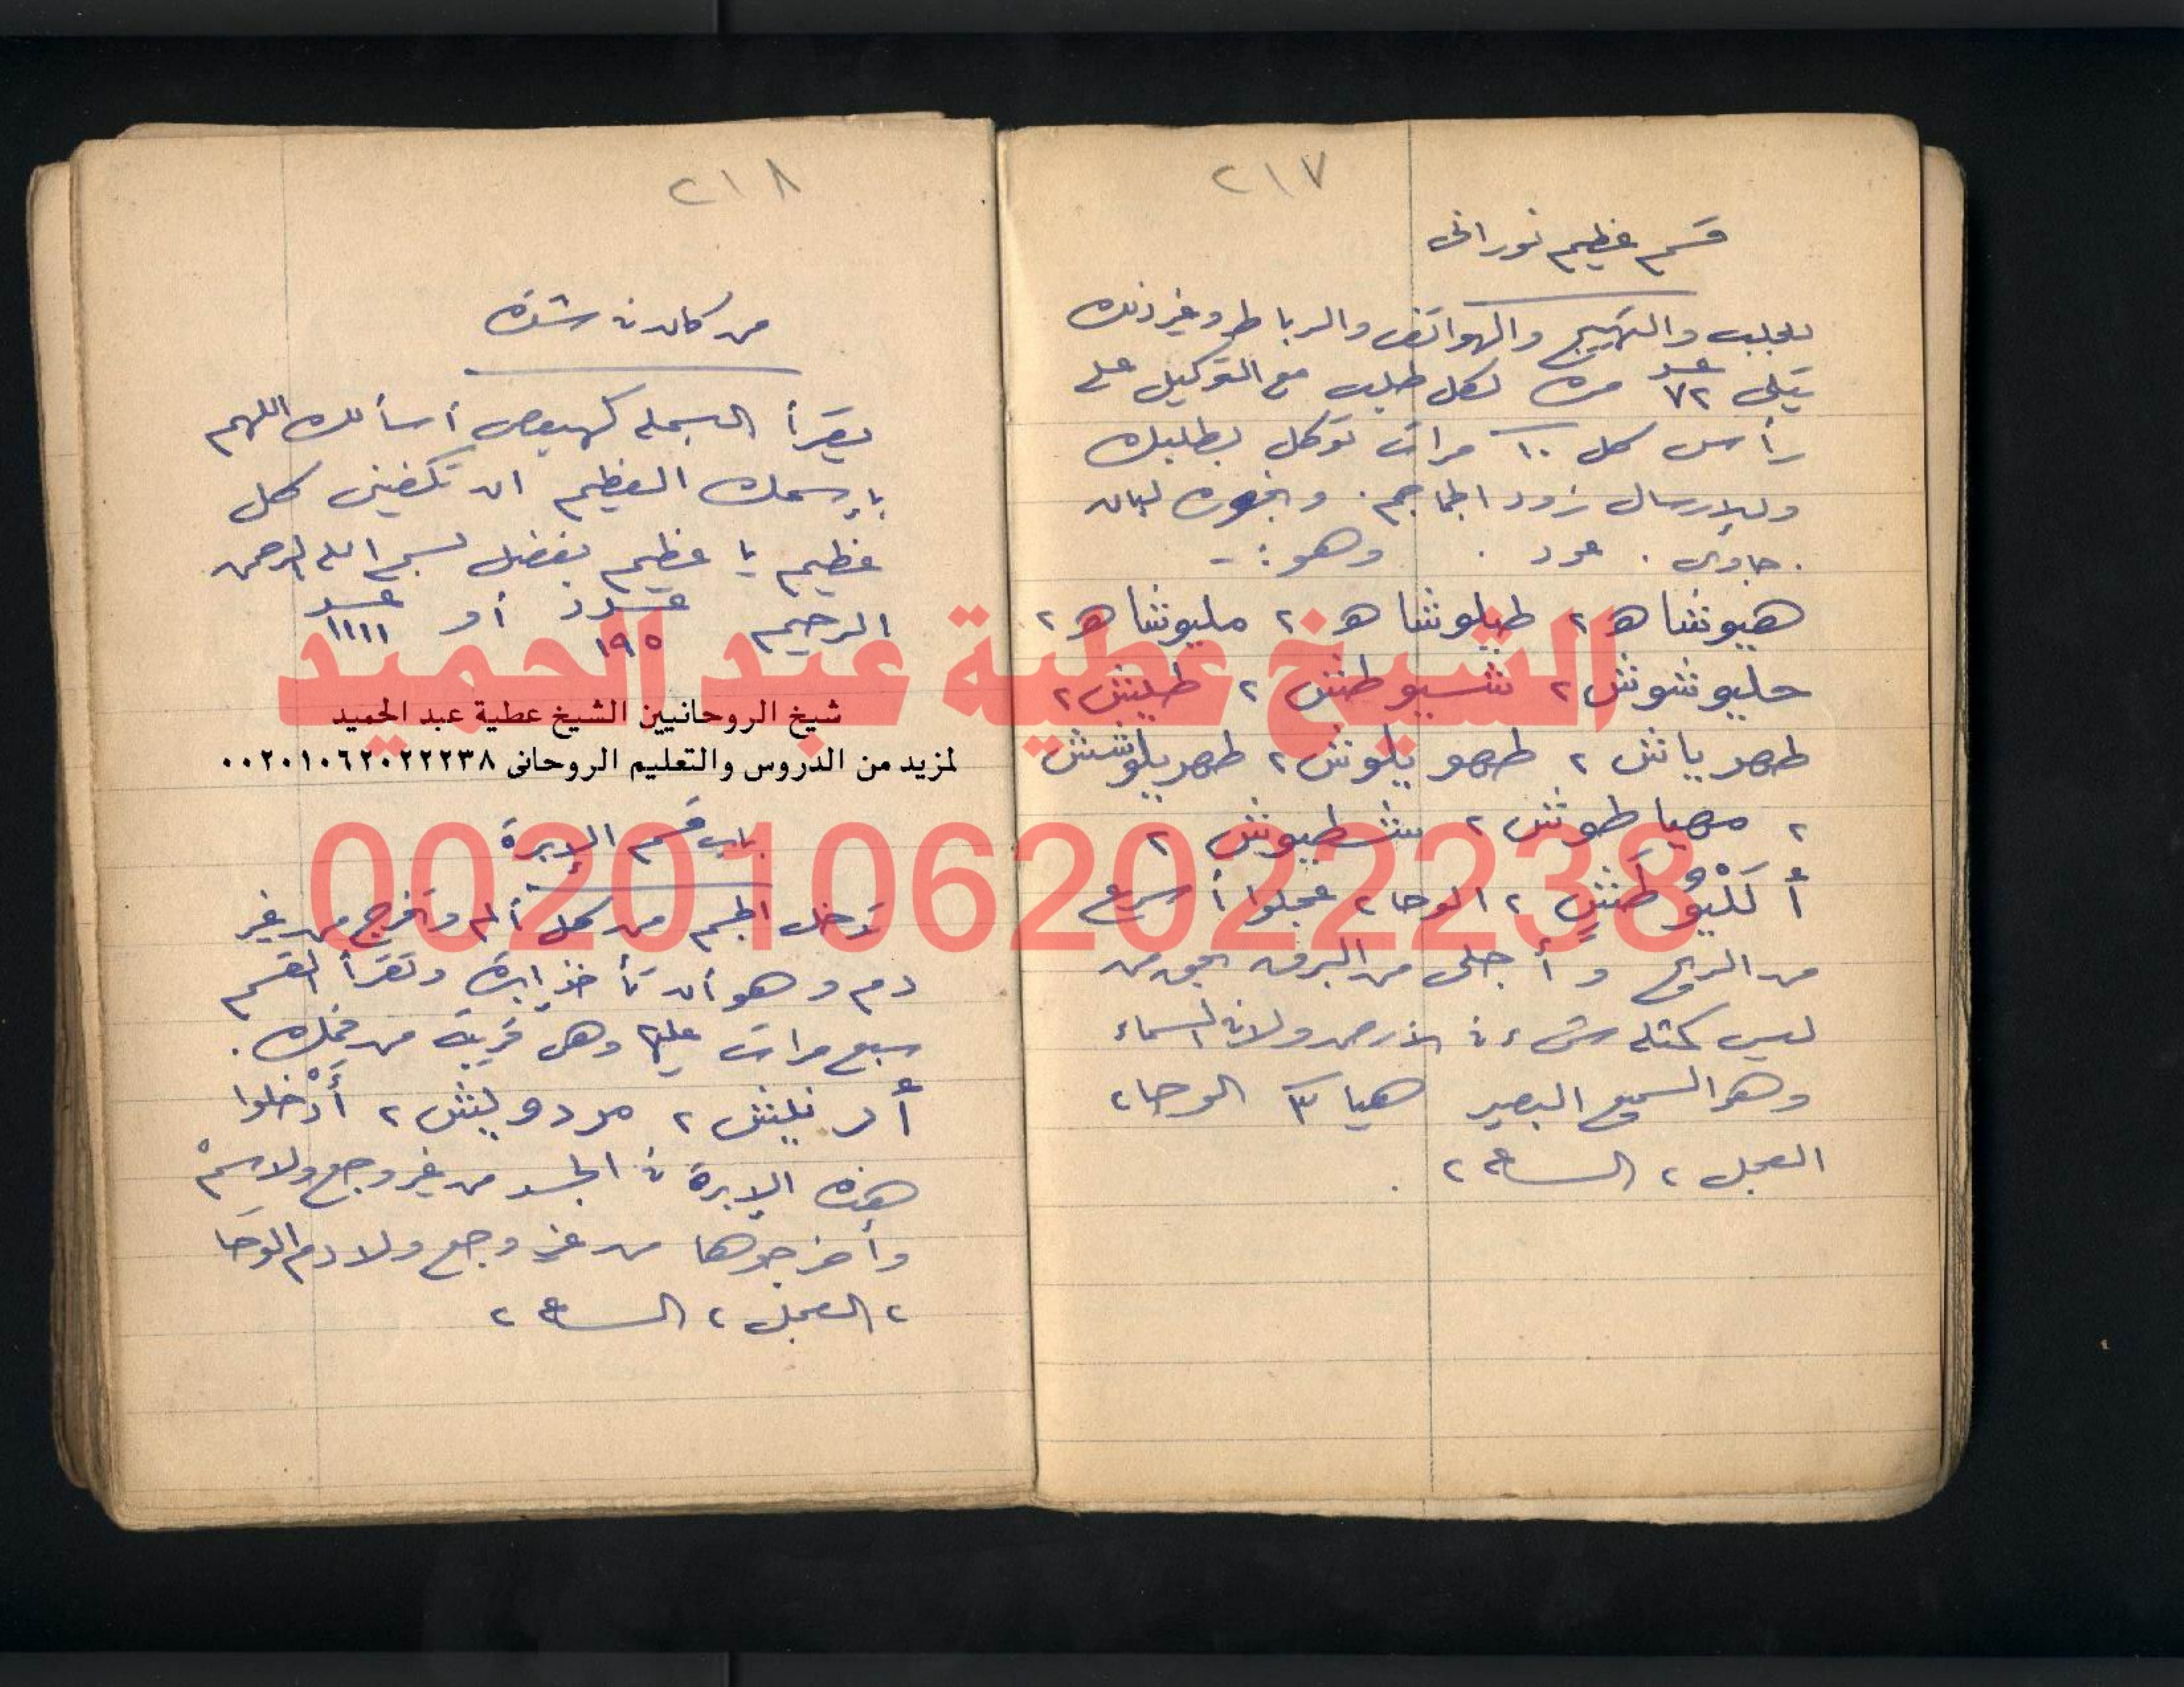 ٢١٧
قسم عظيم نورانى
للجلب والتهييج والهواتف والرباط وغير ذلك
يتلى عدد ٧٢ مرة لكل طلب مع التوكيل على
رأس كل ١٠ مرات توكل بطلبك
وللإرسال زود الجماجم . وبخوره لبان
. جاوى . عود . وهو :-
هيوشاه ٢ طيلوشاه ٢ مليوشاه ٢
حليوشوش ٢ شسيوطش ٢ طيش ٢
طهرياش ٢ طهويلوش ٢ طهريلوشش
٢ مهياطوش ٢ شطيوش ٢
أَلَلْيُوطَشٍ ٢ الوحا ٢ عجلوا أسرع
من الريح وأجلى من البرق بحق من
ليس كمثله شئ فى الأرض ولا فى السماء
وهو السميع البصير هيا ٣ الوحا ٢
العجل ٢ الساعة ٢ .
٢١٨
من كان فى شدة
يقرأ البسملة كهيعص أسألك اللهم
بإسمك العظيم ان تكفينى كل
عظيم يا عظيم بفضل بسم الله الرحمن
الرحيم عدد ١٩٥ أو عدد ١١١١
الشيخ عطية عبد الحميد
شيخ الروحانيين الشيخ عطية عبد الحميد
لمزيد من الدروس والتعليم الروحانى ٠٠٢٠١٠٦٢٠٢٢٢٣٨
باب قسم الإبرة
00201062022238
تدخل الجسم من كل ألم وتخرج من غير
دم وهو أن تأخذ إبرة وتقرأ القسم
سبع مرات عليها وهى قريبة من فمك .
مردوليش ٢ أَدْخلوا
هذه الإبرة فى الجسد من غير وجع ولا سم
وأخرجوها من غير وجع ولا دم الوحَا
٢ العجل ٢ الساعة ٢